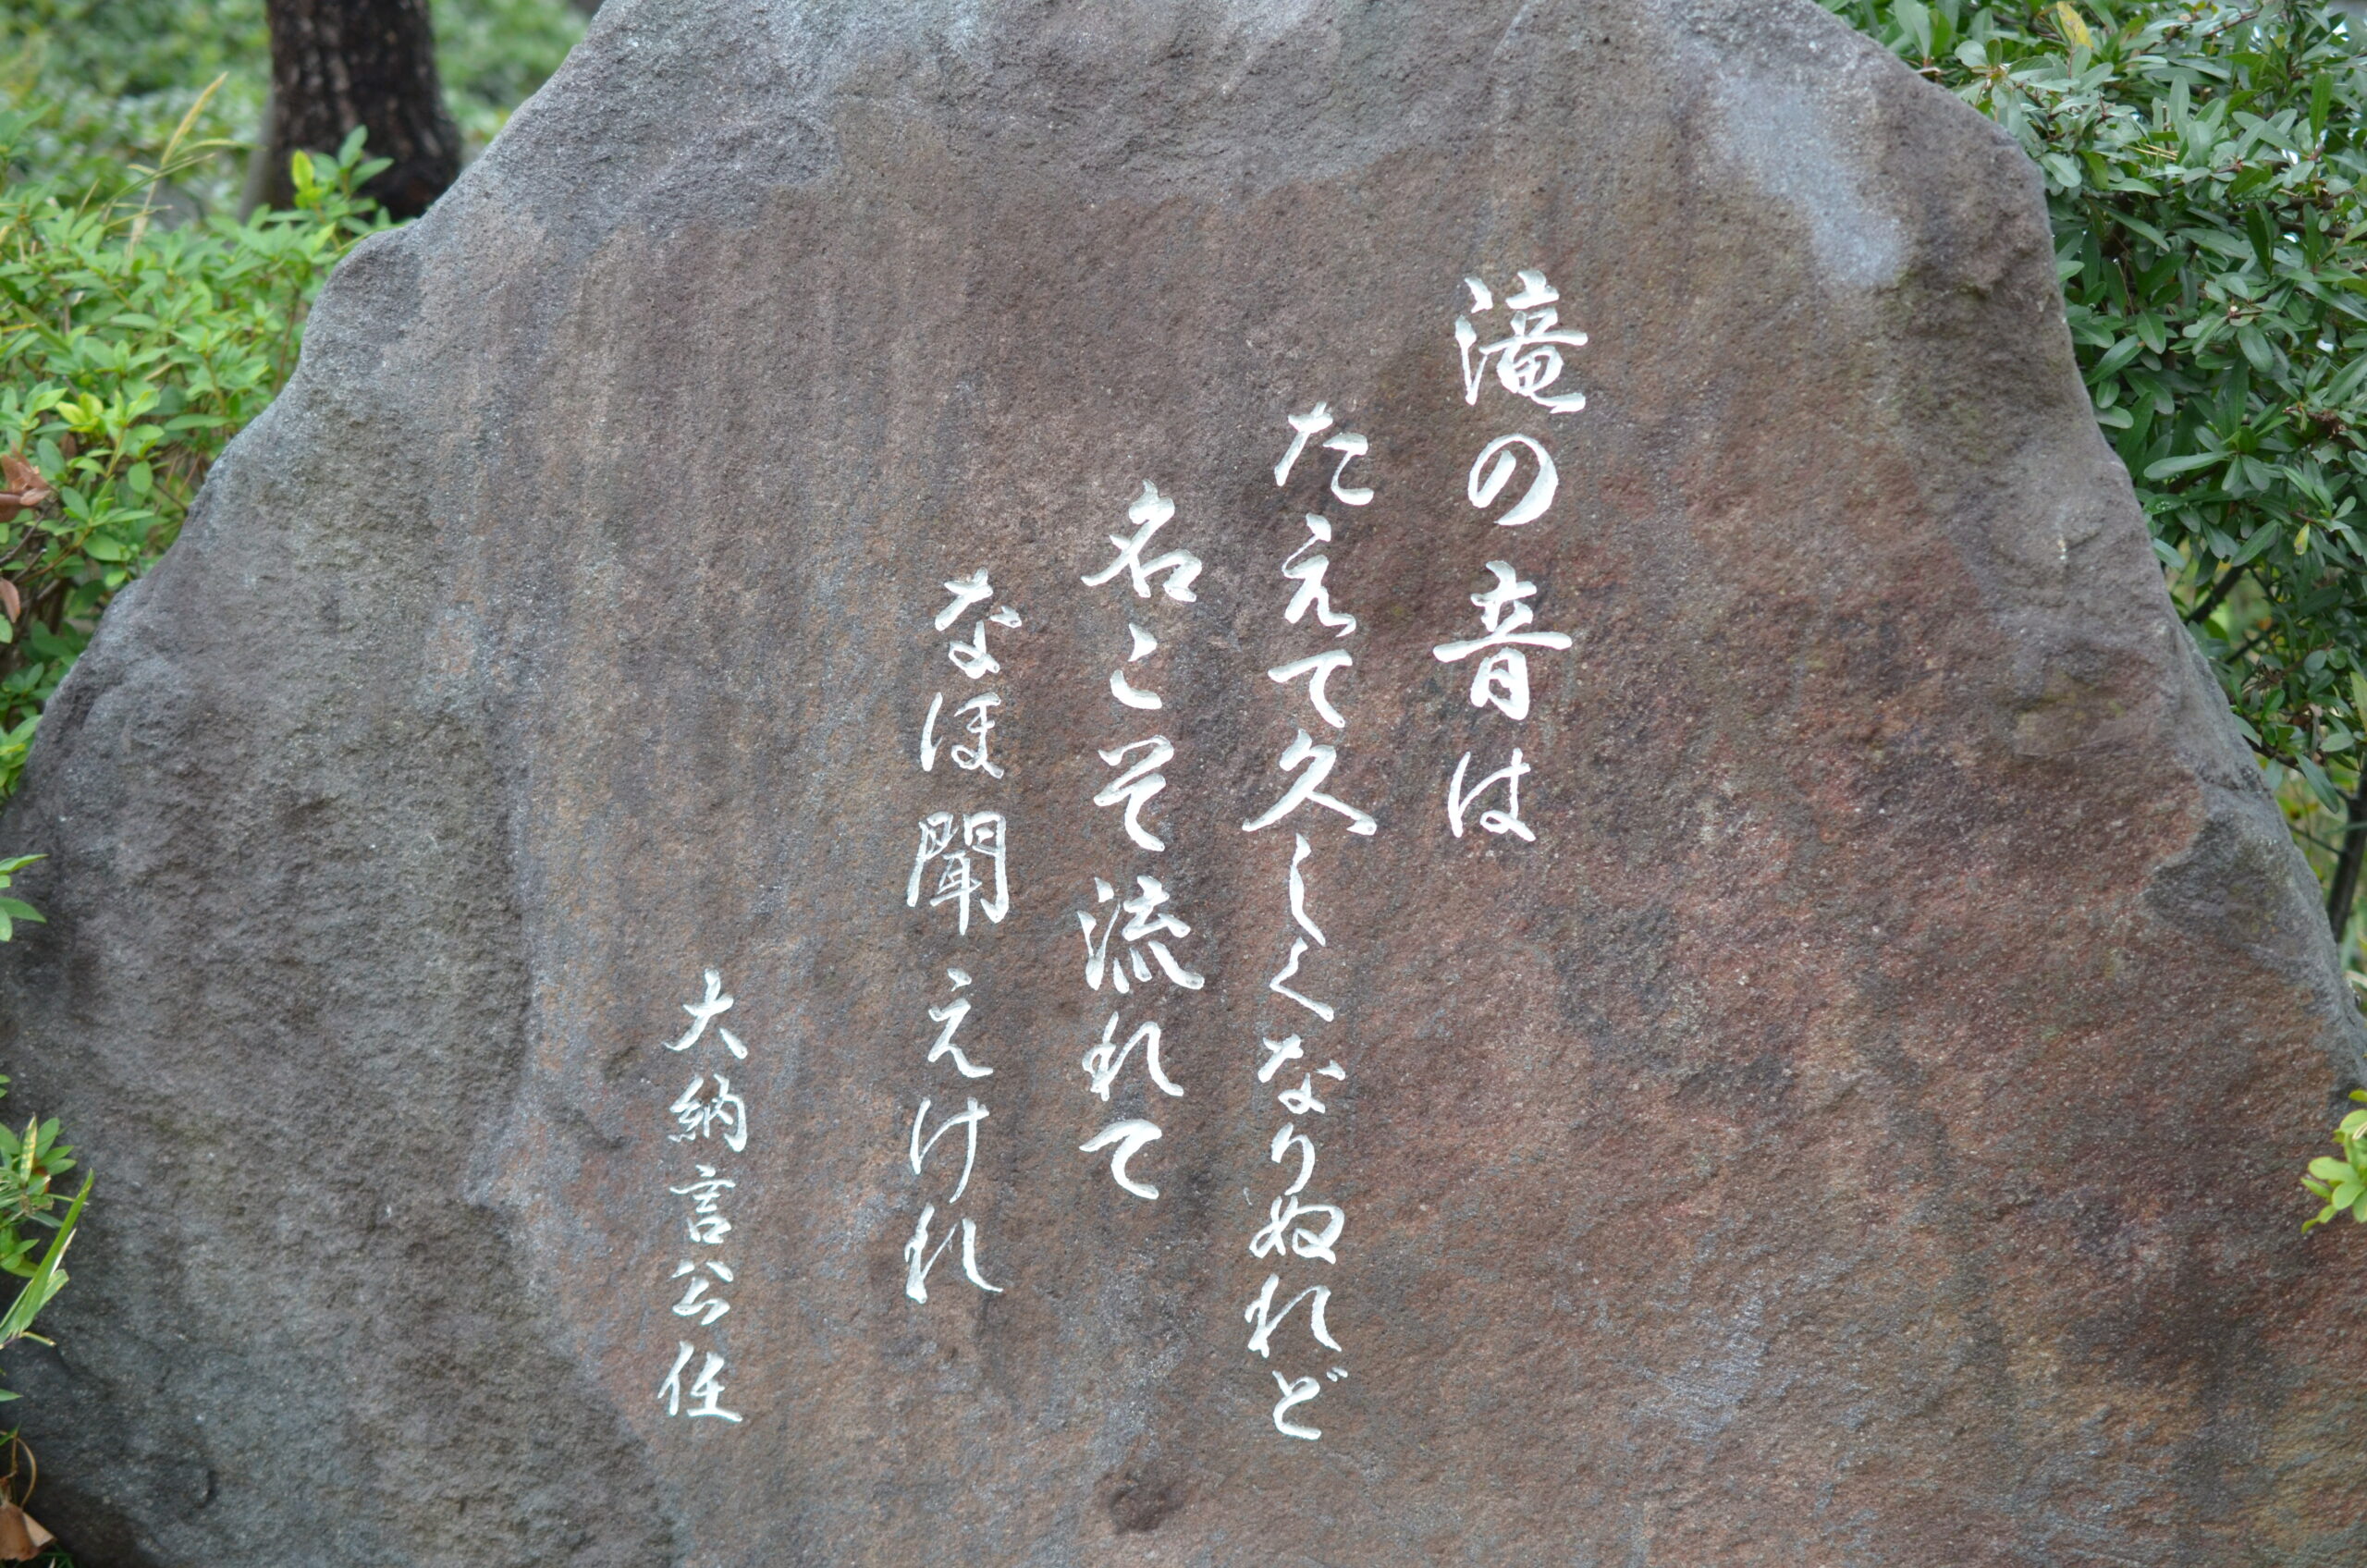 滝の音は
たえて久しくなりぬれど
名こそ流れて
なほ聞えけれ
大納言公任